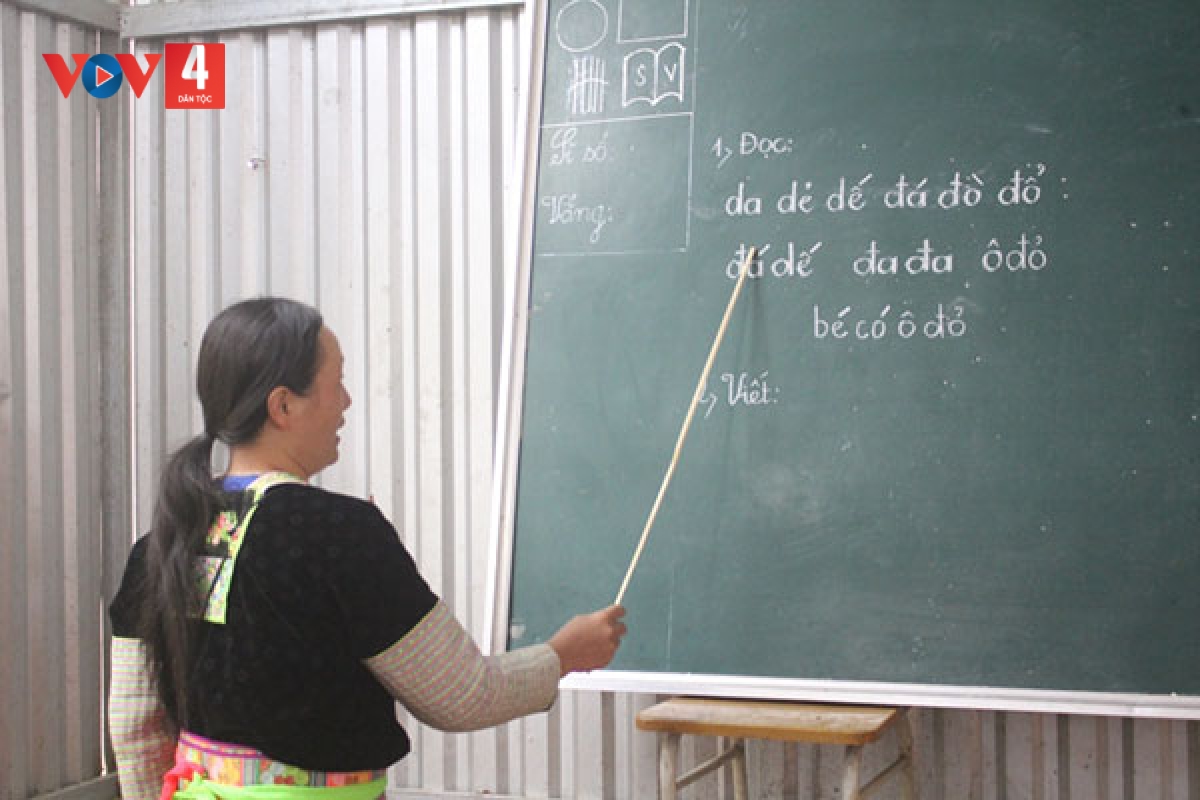 VOV 4
DÂN TỘC
S V
Sĩ số:
Vắng:
1, Đọc:
da dẻ dế đá đò đổ :
đá dế đa đa ô đỏ
bé có ô đỏ
2, Viết: